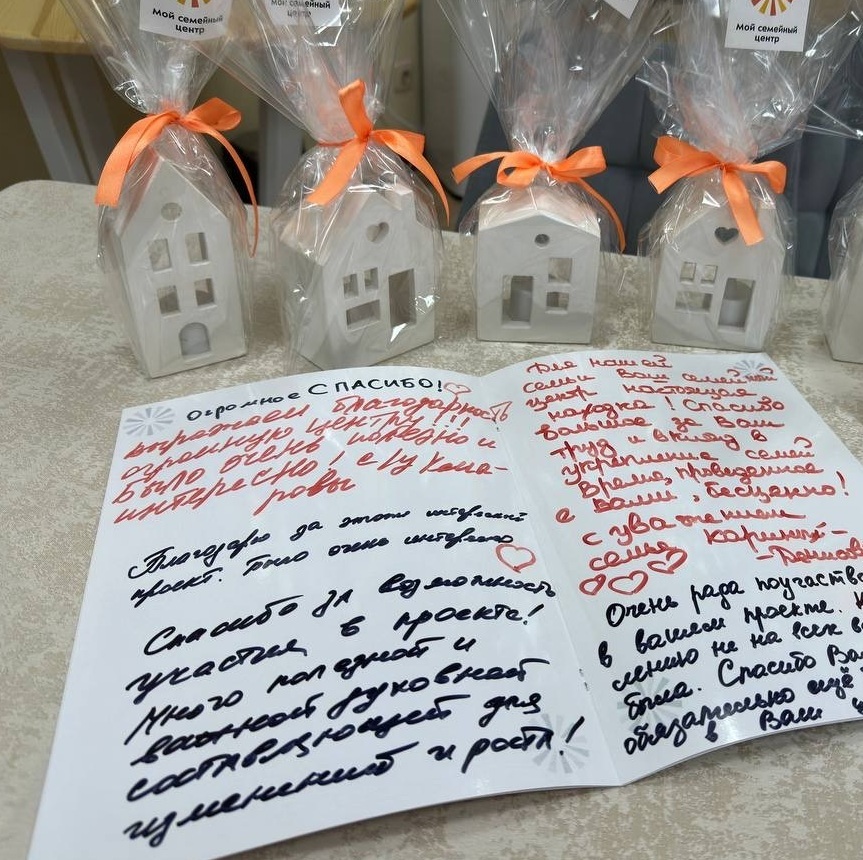 Мой семейный
центр
Мой семейный
центр
Мой семейный
центр
Огромное СПАСИБО!
выражаем благодарность
огромную центру!!!
было очень полезно и
интересно! с/у Кона-
ровы
Благодарю за этот интересный
проект. Было очень интересно
Спасибо за возможность
участия в проекте!
Много полезной и
важной духовной
составляющей для
изменений и роста!
Для нашей
семьи Ваш семейный
центр настоящая
находка! Спасибо
большое за Ваш
труд и вклад в
укрепление семей
Время, проведенное
с Вами, бесценно!
с уважением
семья Кариных-
Очень рада поучаство
в вашем проекте.
лению не на всех
была. Спасибо Вам
обязательно ещё
в Ваш